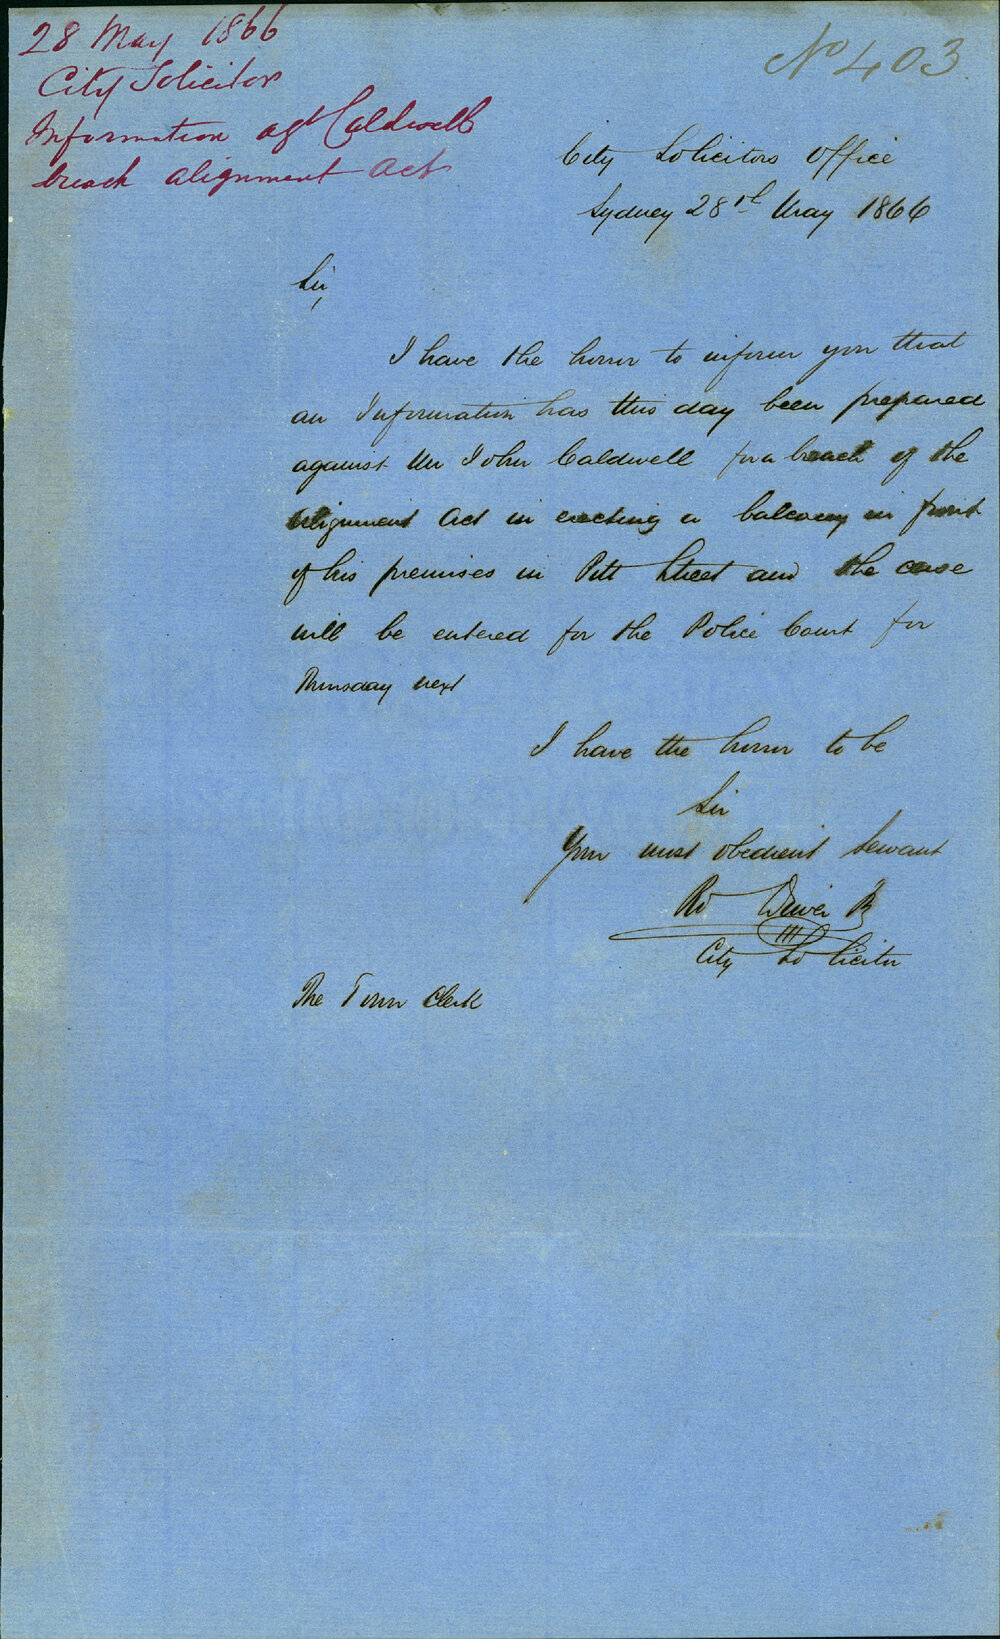 28 May 1866
City Solicitor
Information agt Caldwell
breach alignment Act
No 403
City Solicitors Office
Sydney 28th May 1866
Sir,
I have the honor to inform you that
an Information has this day been prepared
against Mr John Caldwell for a breach of the
Alignment Act in erecting a balcony in front
of his premises in Pitt Street and the case
will be entered for the Police Court for
Thursday next
I have the honor to be
Sir
Your most obedient Servant
Rd Driver Jr
City Solicitor
The Town Clerk